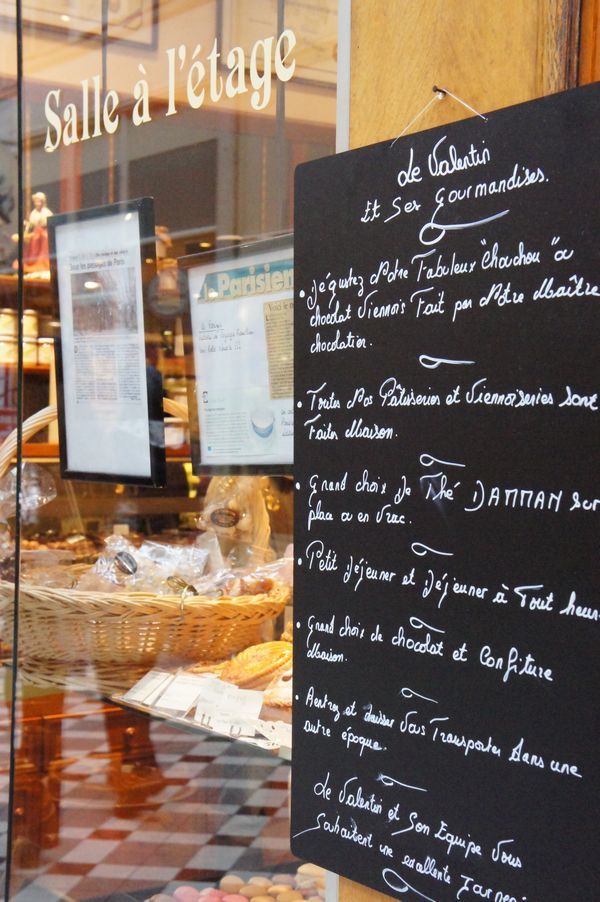 Salle à l'étage
Sous les passages de Paris
Le Parisien
Le Valentin
Et Ses Gourmandises.
• Dégustez Notre Fabuleux "Chouchou" ou
chocolat Viennois Fait par Notre Maître
chocolatier.
• Toutes Nos Pâtisseries et Viennoiseries sont
Faites Maison.
• Grand choix de Thé DAMMAN sur
place ou en vrac.
• Petit Déjeuner et Déjeuner à Tout heur
• Grand choix de chocolat et Confiture
Maison.
• Rentrez et laissez Vous Transporter Dans une
autre époque.
Le Valentin et Son Equipe Vous
Souhaitent une excellente Journé